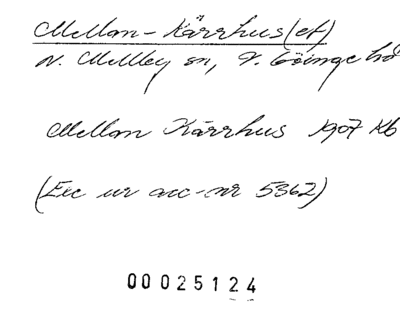 Mellan-Kärrhus (et)
N. Mellby sn, V. Göinge hd
Mellan Kärrhus 1907 Kb
(Exc ur acc-nr 5362)
00025124